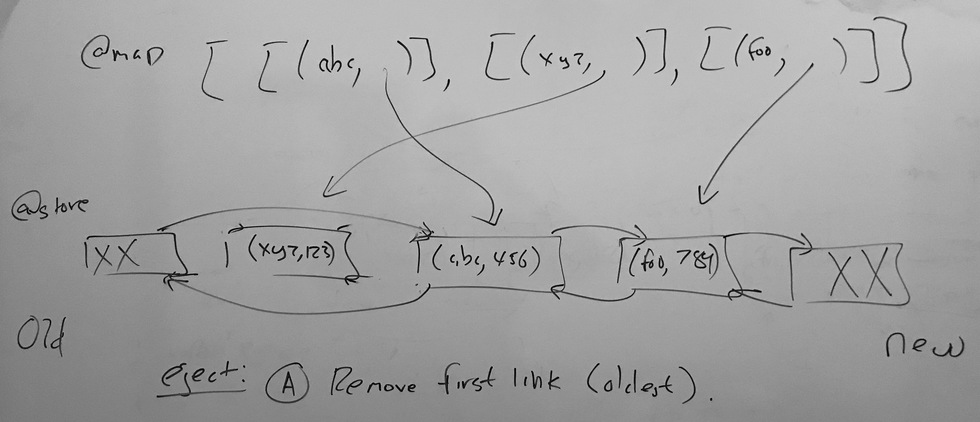 @map [ [(abc, )], [(xyz, )], [(foo, )]]
@store
XX (xyz,123) (abc,456) (foo,789) XX
Old new
eject: (A) Remove first link (oldest).